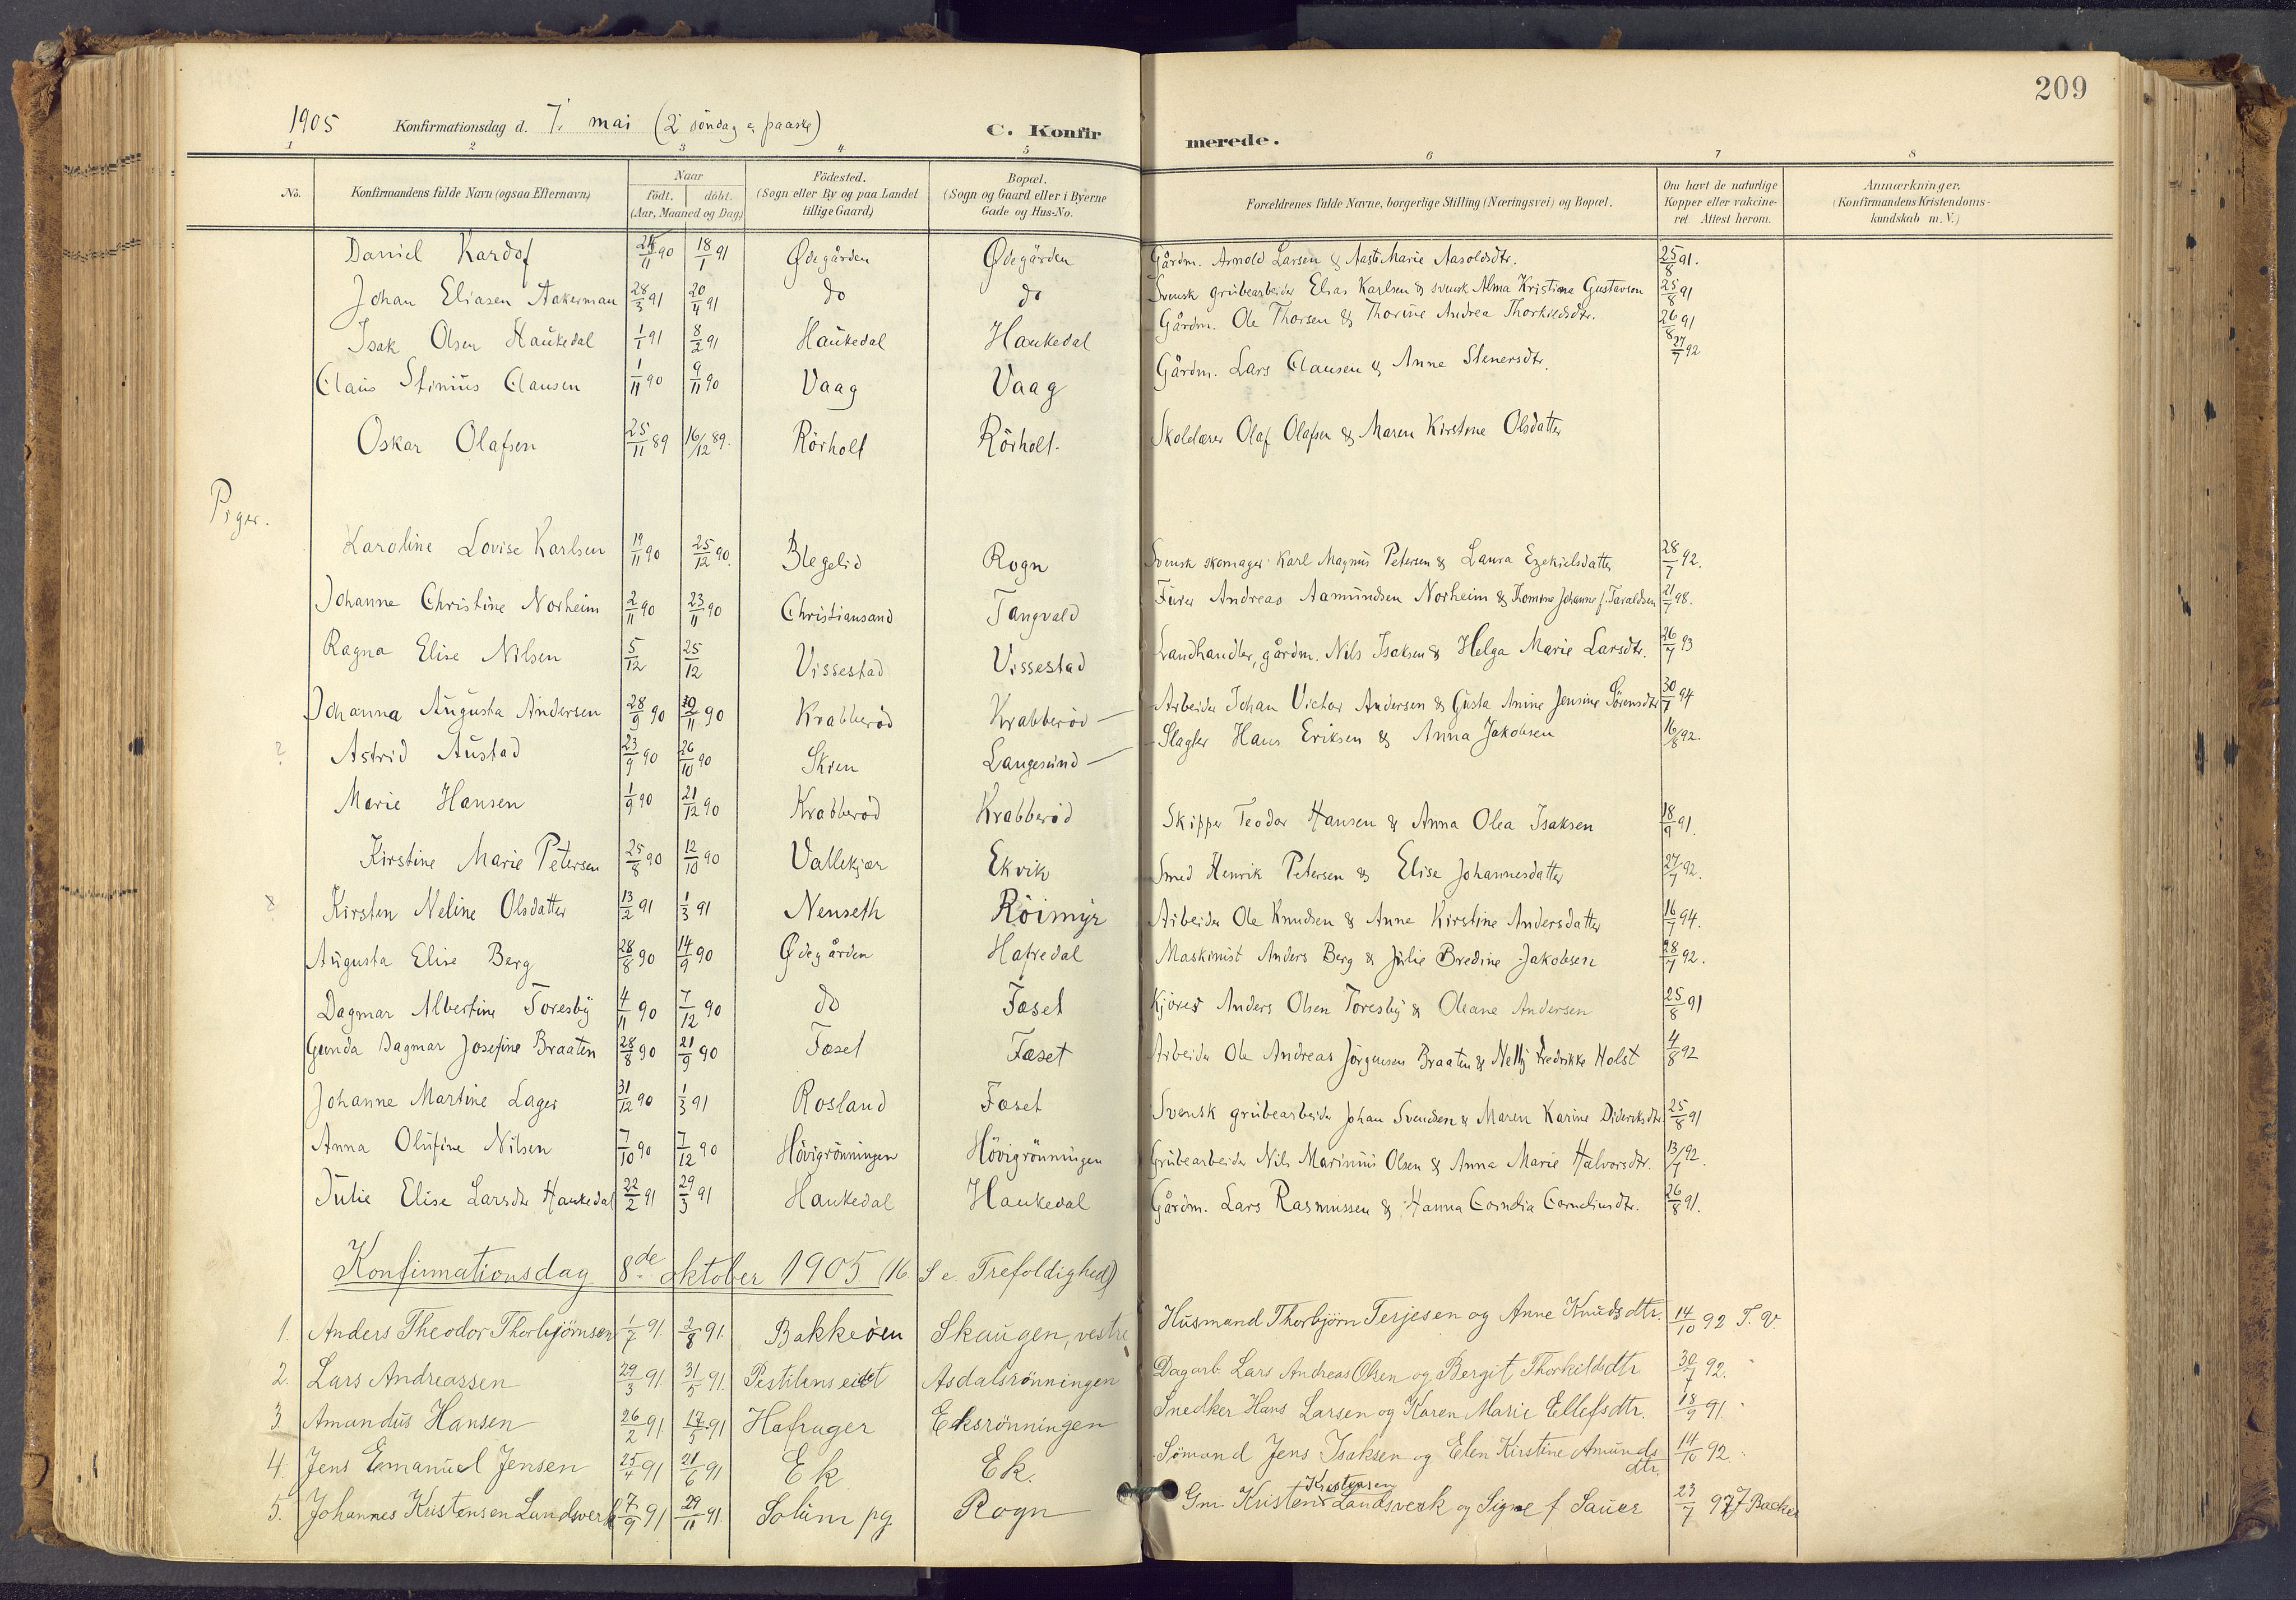 209
1905 Konfirmationsdag d. 7. mai (2 söndag e. paaske) C. Konfirmerede.
1 2 3 4 5 6 7 8
No. Konfirmandens fulde Navn (ogsaa Efternavn) Naar födt. döbt. (Aar, Maaned og Dag) Födested. (Sogn eller By og paa Landet tillige Gaard) Bopæl. (Sogn og Gaard eller i Byerne Gade og Hus-No. Forældrenes fulde Navne, borgerlige Stilling (Næringsvei) og Bopæl. Om havt de naturlige Kopper eller vakcineret. Attest herom. Anmærkninger. (Konfirmandens Kristendomskundskab m. V.)
Daniel Kardof 24/11 90 18/1 91 Ødegården Ødegården Gårdm. Arnold Larsen & Aaste Marie Aasoldsdtr. 25/8 91.
Johan Eliasen Aakerman 28/3 91 20/4 91 do do Svensk grubearbeider Elias Karlsen & svensk Alma Kristina Gustavson 25/8 91
Isak Olsen Haukedal 1/1 91 8/2 91 Haukedal Haukedal Gårdm. Ole Thorsen & Thorine Andrea Thorkildsdtr. 26/8 91
Claus Stinius Clausen 1/11 90 9/11 90 Vaag Vaag Gårdm. Lars Clausen & Anne Stenersdtr. 27/7 92
Oskar Olafsen 25/11 89 16/12 89. Rörholt Rörholt. Skolelærer Olaf Olafsen & Maren Kirstine Olsdatter
Piger.
Karoline Lovise Karlsen 19/11 90 25/12 90. Blegelid Rogn Svensk skomager Karl Magnus Petersen & Laura Ezekielsdatter 28/7 92.
Johanne Christine Norheim 2/11 90 23/11 90 Christiansand Tangvald Furer Andreas Aamundsen Norheim & Thomine Johanne f. Taraldsen 21/7 98.
Ragna Elise Nilsen 5/12 25/12 Vissestad Vissestad Landhandler, gårdm. Nils Isaksen & Helga Marie Larsdtr. 26/7 93
Johanna Augusta Andersen 28/9 90 30/11 90 Krabberød Krabberød Arbeider Johan Victor Andersen & Gusta Anine Jensine Sörensdtr 30/7 94
? Astrid Austad 23/9 90 26/10 90 Skien Langesund Slagter Hans Eriksen & Anna Jakobsen 16/8 92.
Marie Hansen 1/9 90 21/12 90 Krabberød Krabberød Skipper Teodor Hansen & Anna Olea Isaksen 18/9 91.
Kirstine Marie Petersen 25/8 90 12/10 90 Vallekjær Ekvik Smed Henrik Petersen & Elise Johannesdatter 27/7 92.
Kirsten Neline Olsdatter 13/2 91 1/3 91 Nenseth Röimyr Arbeider Ole Knudsen & Anne Kirstine Andersdatter 16/7 94.
Augusta Elise Berg 28/8 90 14/9 90 Ødegården Hafredal Maskinist Anders Berg & Julie Bredine Jakobsen 28/7 92.
Dagmar Albertine Foresby 4/11 90 7/12 90 do Fæset Kjörer Anders Olsen Foresby & Oleane Andersen 25/8 91
Gunda Dagmar Josefine Braaten 28/8 90 21/9 90 Fæset Fæset Arbeider Ole Andreas Jörgensen Braaten & Nelly Fredrikke Holst 4/8 92
Johanne Martine Lager 31/12 90 1/3 91 Rosland Fæset Svensk grubearbeider Johan Svendsen & Maren Karine Dideriksdtr 25/8 91
Anna Olufine Nilsen 7/10 90 7/12 90 Hövigrönningen Hövigrönningen Grubearbeider Nils Marinius Olsen & Anna Marie Halvorsdtr. 13/7 92.
Julie Elise Larsdtr Haukedal 22/2 91 29/3 91 Haukedal Haukedal Gårdm. Lars Rasmussen & Hanna Corndia Corneliusdtr. 26/8 91.
Konfirmationsdag 8de oktober 1905 (16. S e. Trefoldighed)
1. Anders Theodor Thorbjörnsen 1/7 91. 2/8 91. Bakkeöen Skaugen, vestre Husmand Thorbjörn Terjesen og Anne Knudsdtr. 14/10 92 T. V.
2. Lars Andreassen 29/3 91. 31/5 91. Pestilenseidet Asdalsrönningen Dagarb Lars Andreas Olsen og Bergit Thorkildsdtr 30/7 92.
3 Amandus Hansen 26/2 91 17/5 91 Hafsager Eeksrönningen Snedker Hans Larsen og Karen Marie Ellefsdtr. 18/9 91
4. Jens Emanuel Jensen 25/4 91 21/6 91 Ek Ek. Sömand Jens Isaksen og Elen Kirstine Amundsdtr. 14/10 92.
5. Johannes Kristensen Landsverk 7/9 91 29/11 91. Solum pg Rogn Gm Kristen Kristensen Landsverk og Signe f Sauer 23/7 97 J Backer